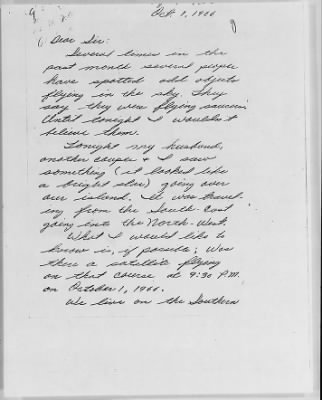 Oct. 1, 1966
Dear Sir:
Several times in the
past month several people
have spotted odd objects
flying in the sky. They
say they were flying saucers.
Until tonight I wouldn't
believe them.
Tonight my husband,
another couple & I saw
something (it looked like
a bright star) going over
our island. It was travel-
ing from the South-East
going into the North-West.
What I would like to
know is, if possible; Was
there a satellite flying
on that course at 9:30 P.M.
on October 1, 1966.
We live on the Southern